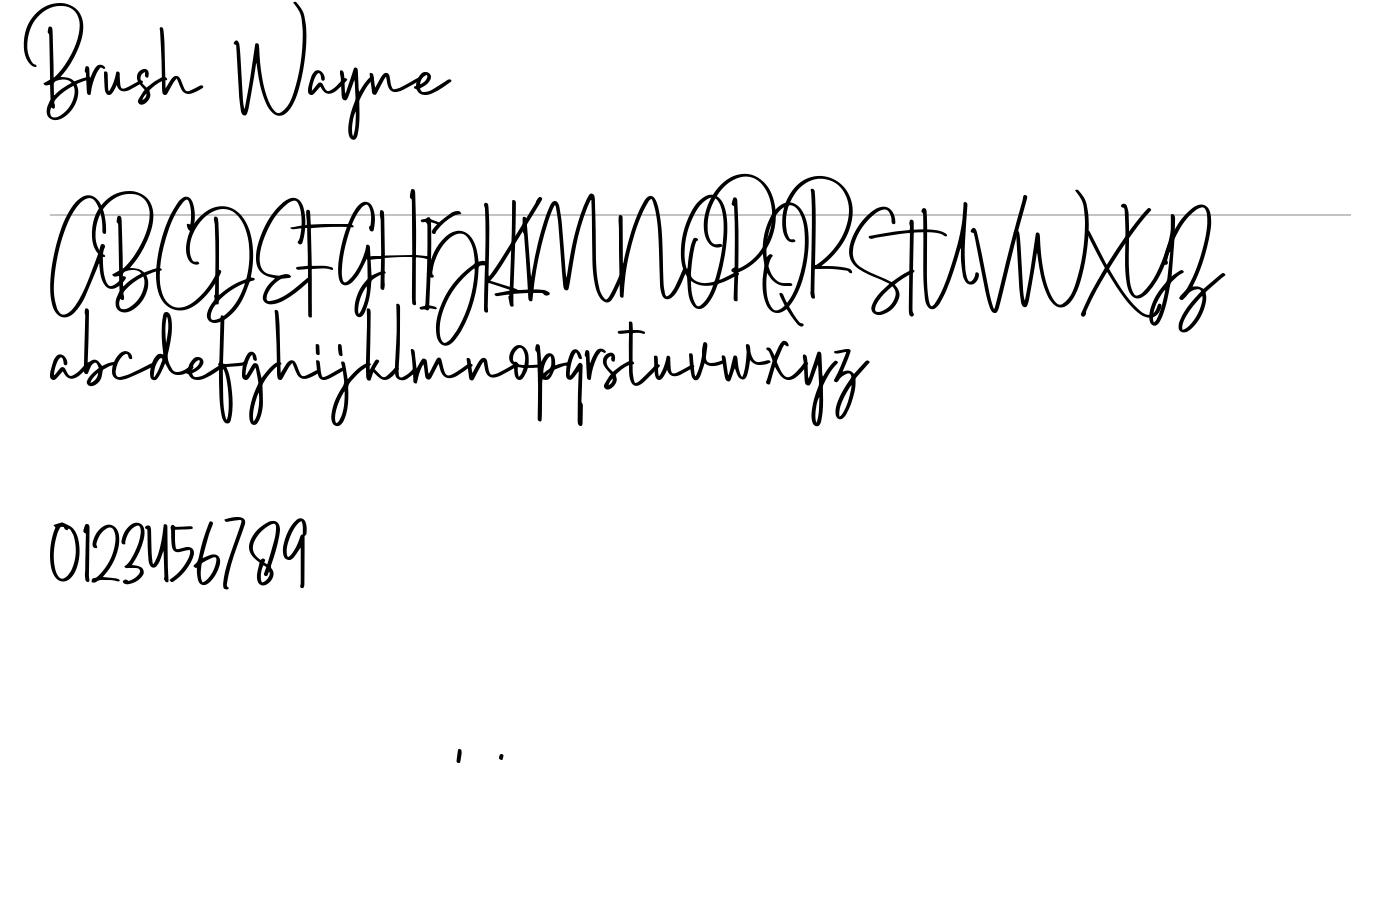 Brush Wayne
ABCDEFGHIJKLMNOPQRSTUVWXYZ
abcdefghijklmnopqrstuvwxyz
0123456789
, .